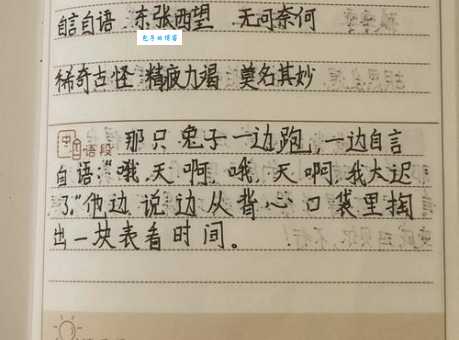 自言自语 东张西望 无可奈何
稀奇古怪 精疲力竭 莫名其妙
语段 那只兔子一边跑，一边自言
自语："哦，天啊，哦，天啊，我太迟
了。"他边说边从背心口袋里掏
出一块表看时间。